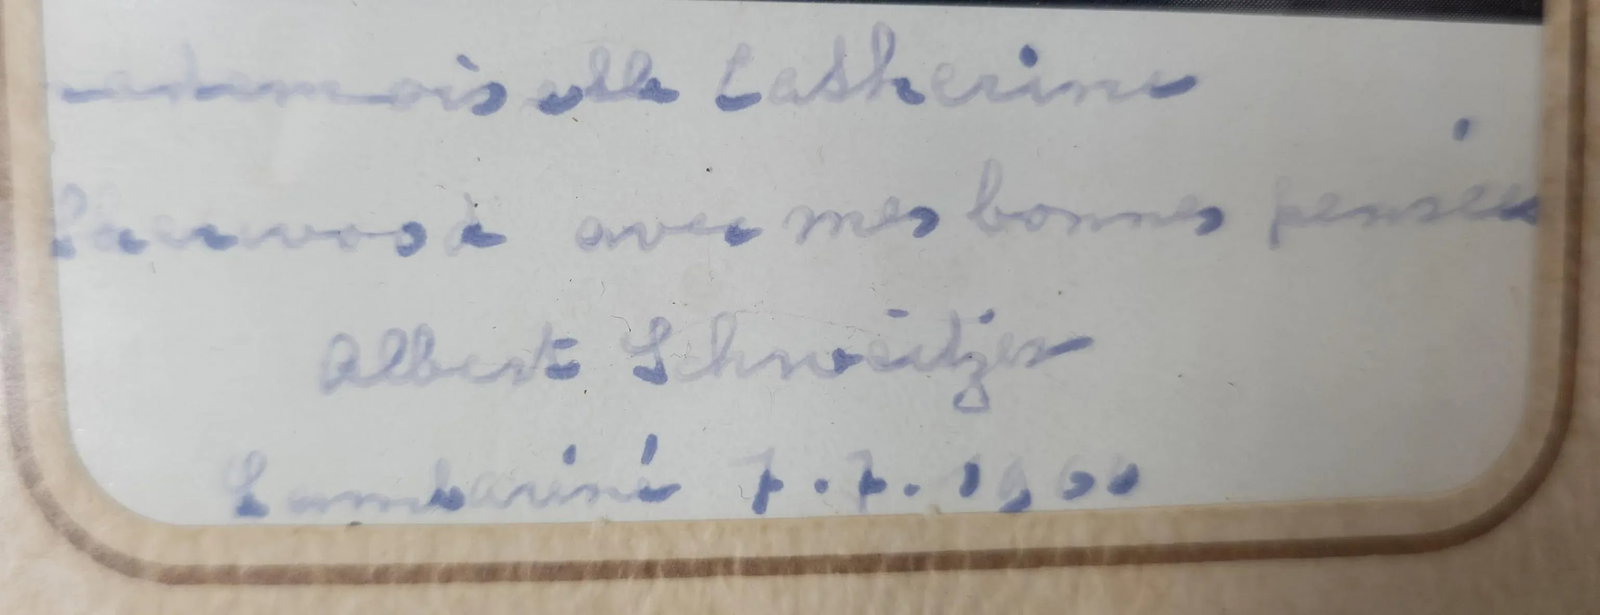 mademoiselle Catherine
Sherwood avec mes bonnes pensées
Albert Schweitzer
Lambaréné 7.7.1960